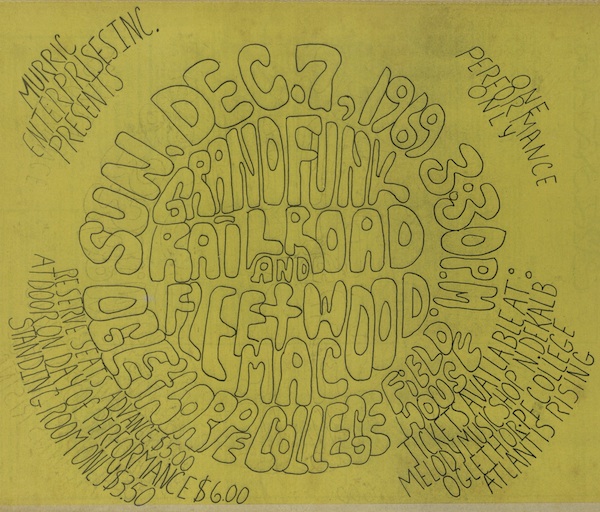 MURRIC
ENTERPRISES INC.
PRESENTS
ONE
PERFORMANCE
ONLY
SUN. DEC. 7, 1969 3:30 P.M.
GRAND FUNK
RAILROAD
AND
FLEETWOOD
MAC
OGLETHORPE COLLEGE FIELD
HOUSE
RESERVE SEATS ADVANCE $5.00
AT DOOR ON DAY OF PERFORMANCE $6.00
STANDING ROOM ONLY $3.50
TICKETS AVAILABLE AT:
MELODY MUSIC SHOP N. DEKALB
OGLETHORPE COLLEGE
ATLANTIS RISING